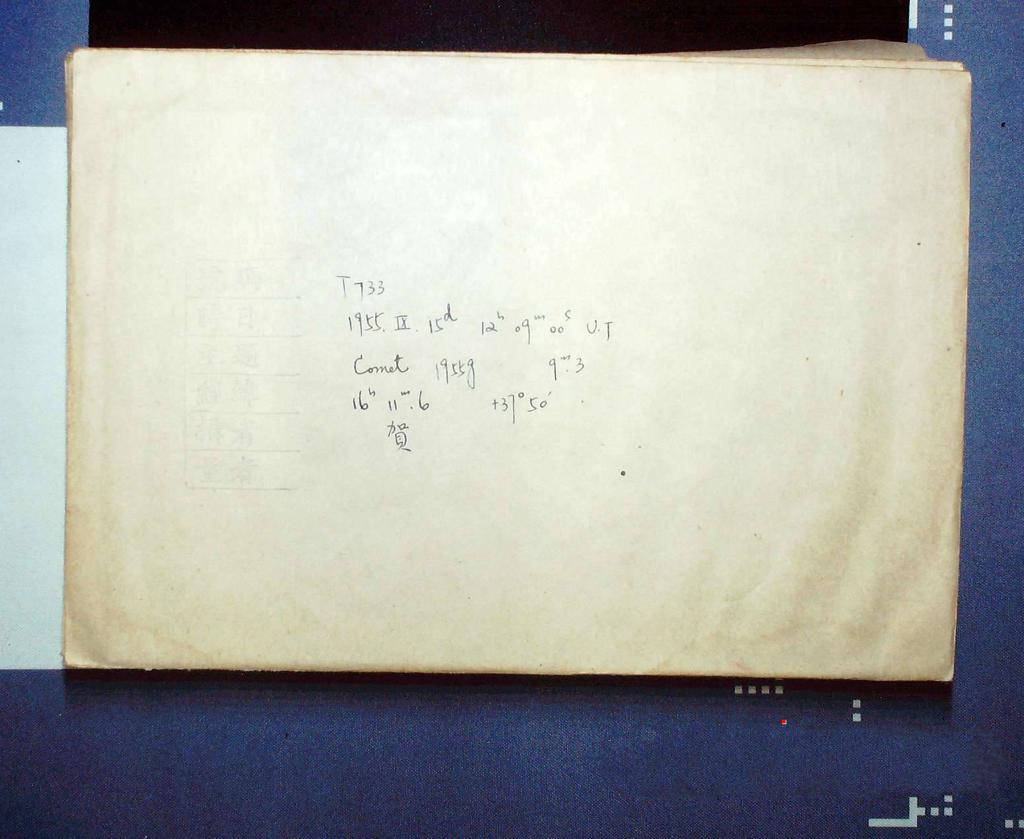 T 733
1955. IX. 15ᵈ 12ʰ 09ᵐ 00ˢ U.T
Comet 1955g 9ᵐ.3
16ʰ 11ᵐ.6 +37° 50′
賀